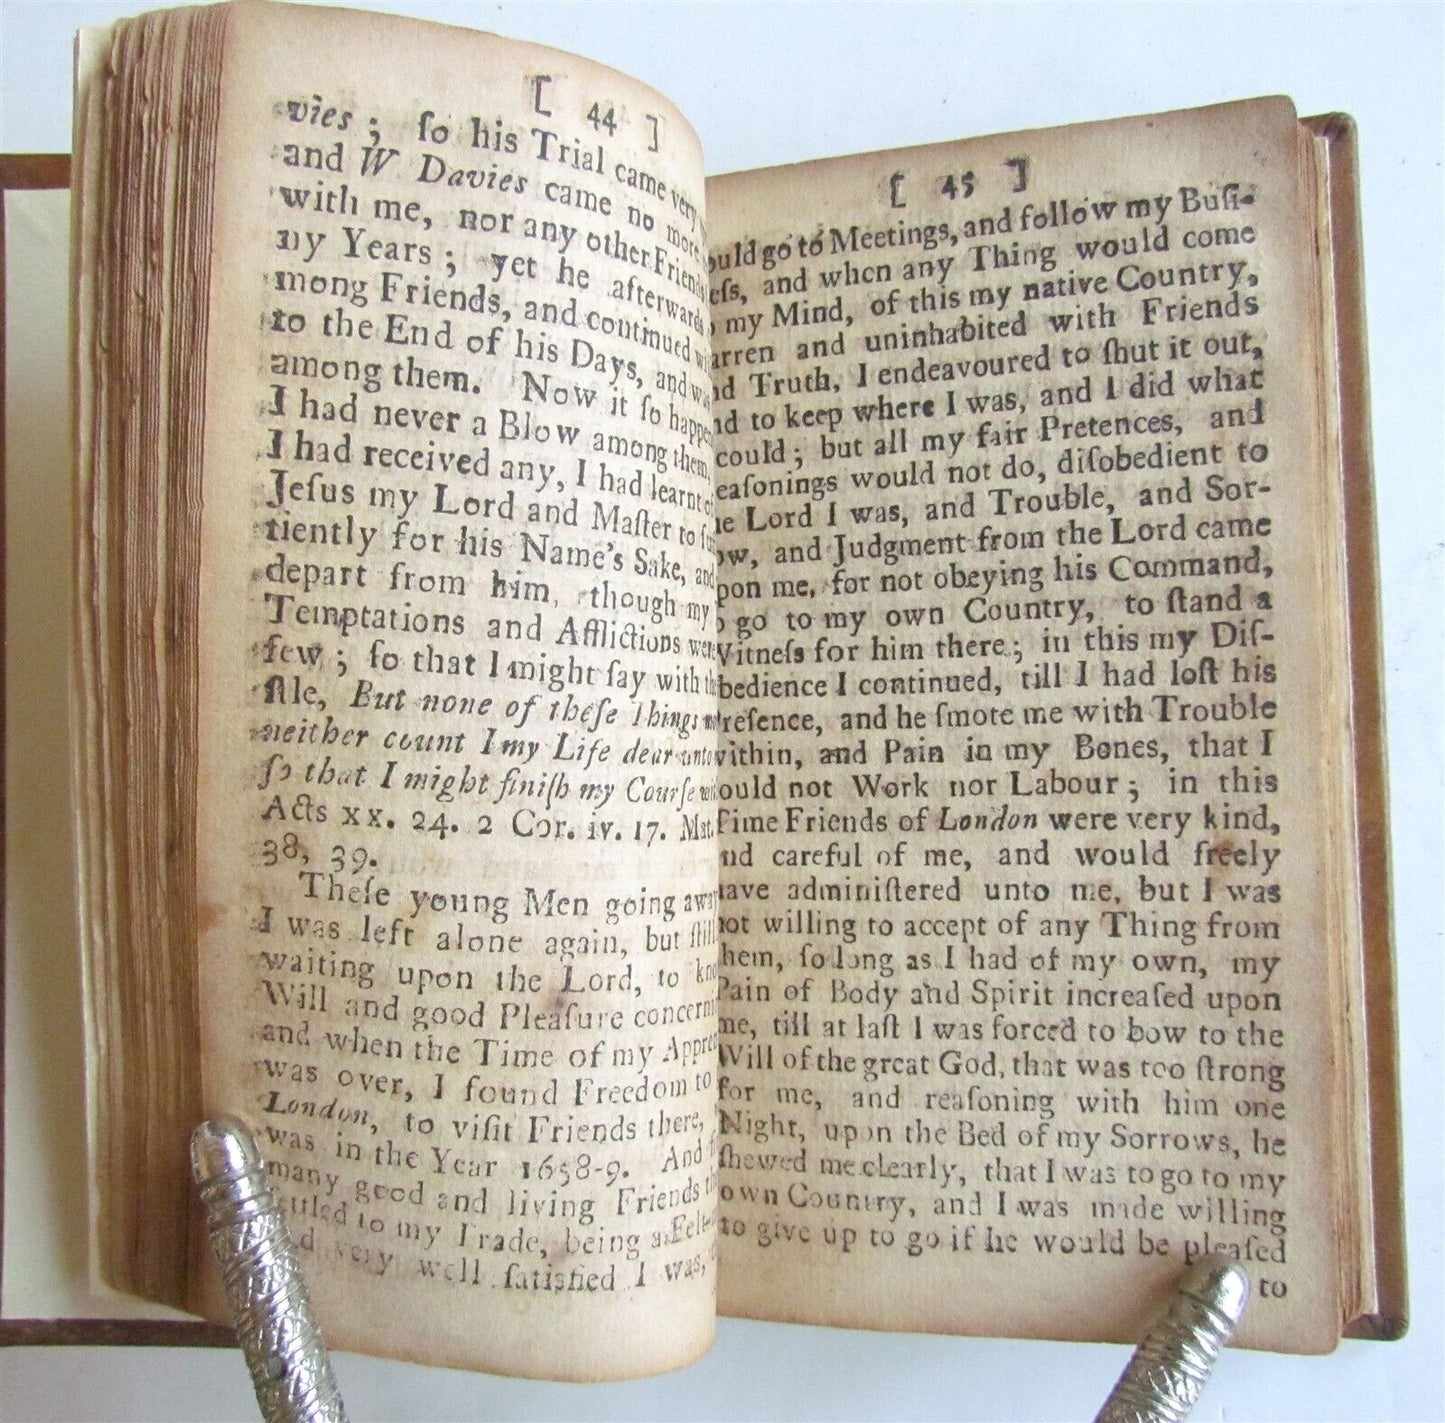 [ 44 ]
vies ; ſo his Trial came very
and W Davies came no more
with me, nor any other Friends
ny Years ; yet he afterwards
mong Friends, and continued
to the End of his Days, and was
among them. Now it ſo happe
I had never a Blow among them,
I had received any, I had learnt of
Jeſus my Lord and Maſter to ſu
tiently for his Name's Sake, and
depart from him, though my
Temptations and Afflictions were
few ; ſo that I might ſay with th
ſtle, But none of theſe Things
neither count I my Life dear unto
ſo that I might finiſh my Courſe wi
Acts xx. 24. 2 Cor. iv. 17. Mat.
38, 39.
Theſe young Men going away
I was left alone again, but ſtill
waiting upon the Lord, to kno
Will and good Pleaſure concerni
and when the Time of my Appre
was over, I found Freedom to
London, to viſit Friends there,
was in the Year 1658-9. And
many good and living Friends th
ſettled to my Trade, being a Felt-
very well ſatisfied I was,
[ 45 ]
ould go to Meetings, and follow my Buſi-
eſs, and when any Thing would come
my Mind, of this my native Country,
arren and uninhabited with Friends
nd Truth, I endeavoured to ſhut it out,
nd to keep where I was, and I did what
could ; but all my fair Pretences, and
eaſonings would not do, diſobedient to
he Lord I was, and Trouble, and Sor-
ow, and Judgment from the Lord came
pon me, for not obeying his Command,
o go to my own Country, to ſtand a
Witneſs for him there ; in this my Diſ-
bedience I continued, till I had loſt his
reſence, and he ſmote me with Trouble
within, and Pain in my Bones, that I
ould not Work nor Labour ; in this
Time Friends of London were very kind,
nd careful of me, and would freely
ave adminiſtered unto me, but I was
not willing to accept of any Thing from
hem, ſo long as I had of my own, my
Pain of Body and Spirit increaſed upon
me, till at laſt I was forced to bow to the
Will of the great God, that was too ſtrong
for me, and reaſoning with him one
Night, upon the Bed of my Sorrows, he
ſhewed me clearly, that I was to go to my
own Country, and I was made willing
to give up to go if he would be pleaſed
to